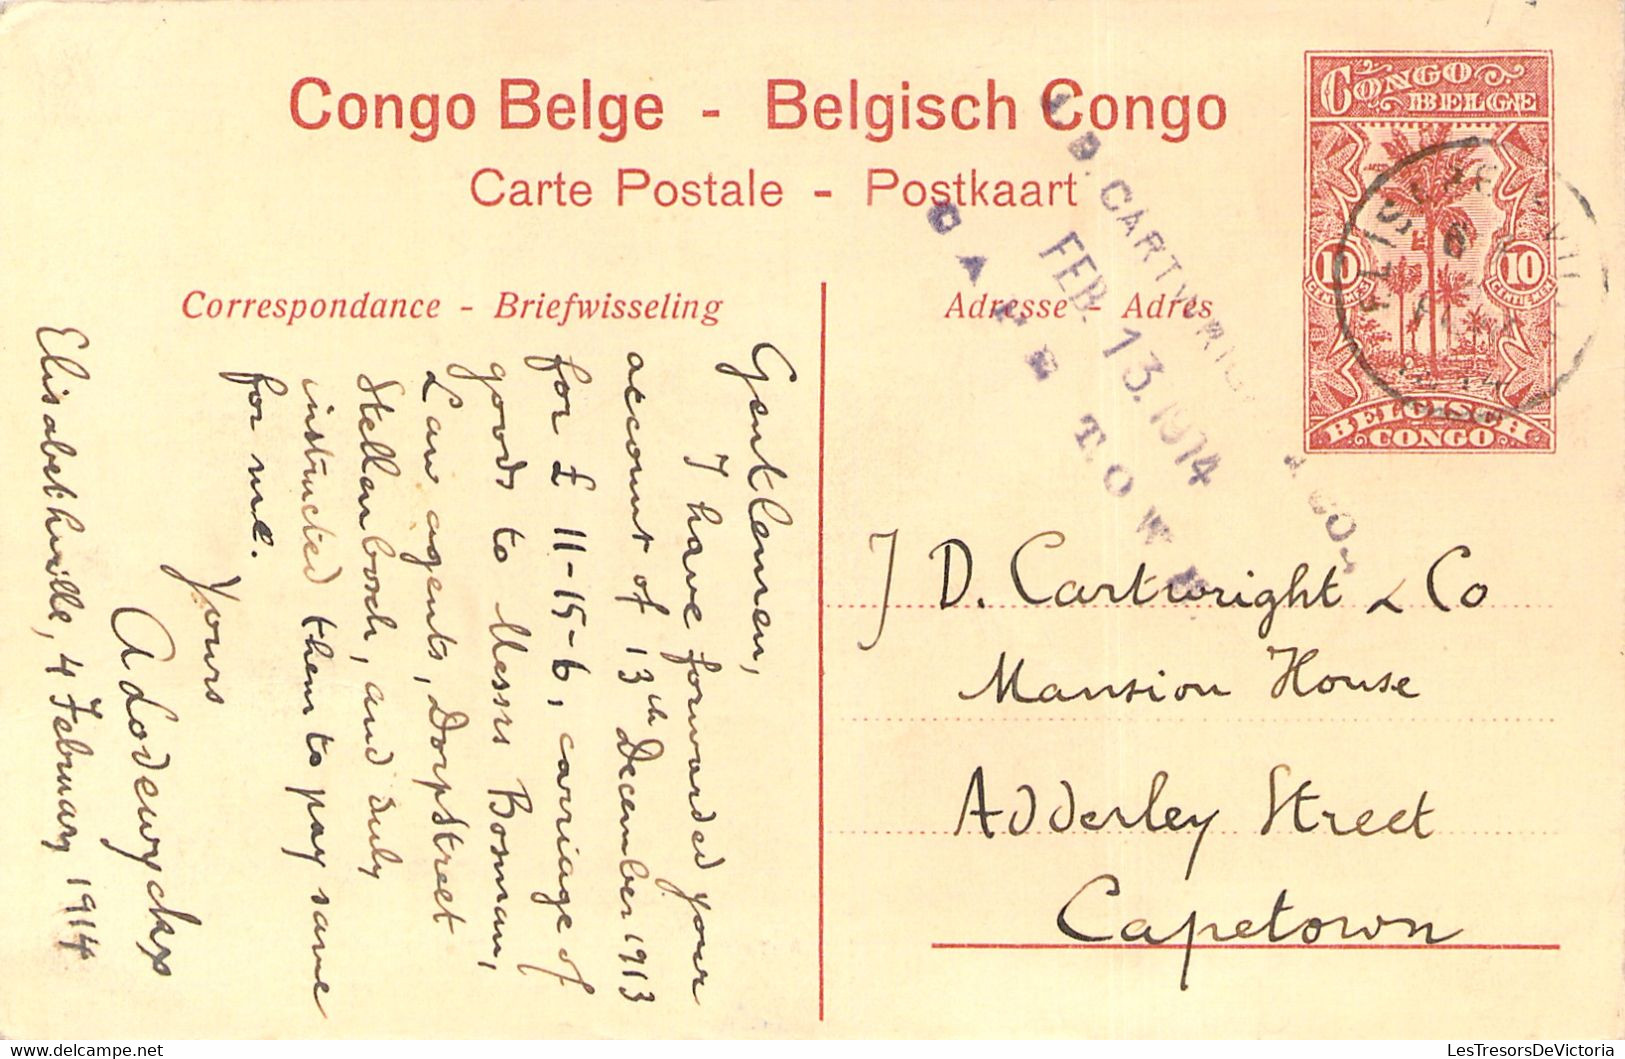 Congo Belge - Belgisch Congo
Carte Postale - Postkaart
Correspondance - Briefwisseling
Adresse - Adres
CONGO
BELGE
10
CENTIMES
10
CENTIEMEN
BELGISCH
CONGO
D. CARTWRIG
CO.
FEB. 13. 1914
CAPE TOWN
Elisabethville, 4 February 1914
Gentlemen,
I have forwarded your
account of 13th December 1913
for £ 11-15-6, carriage of
goods to Messrs Bosman,
Law agents, Dorpstreet
Stellenbosch, and duly
instructed them to pay same
for me.
Yours
A Lodewyckx
J D. Cartwright & Co
Mansion House
Adderley Street
Capetown
LesTresorsDeVictoria